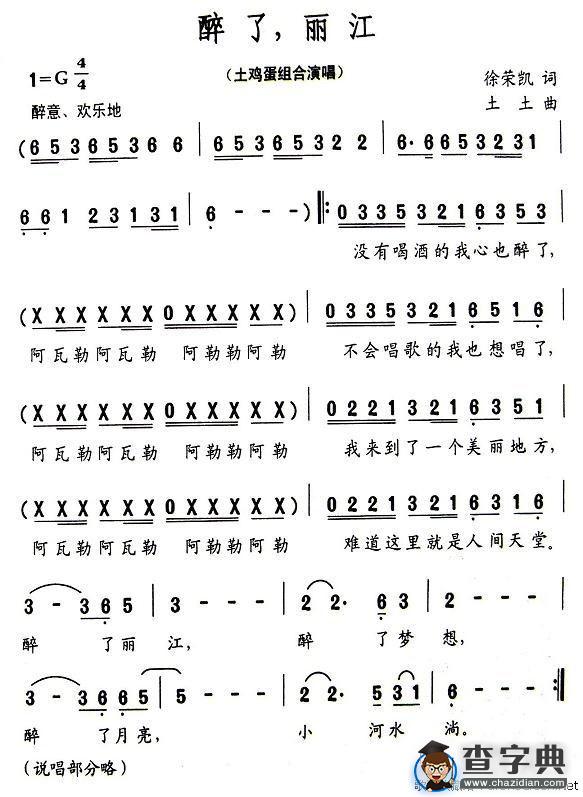 醉了，丽江
（土鸡蛋组合演唱）
1=G 4/4
徐荣凯 词
醉意、欢乐地
土 土 曲
(6 5 3 6 5 3 6 6 | 6 5 3 6 5 3 2 2 | 6· 6 6 5 3 2 3 1 |
6 6 1 2 3 1 3 1 | 6 - - -) ‖: 0 3 3 5 3 2 1 6 3 5 3
没有喝酒的我心也醉了，
(X X X X X X 0 X X X X X) | 0 3 3 5 3 2 1 6 5 1 6 |
阿瓦勒阿瓦勒 阿勒勒阿勒 不会唱歌的我也想唱了，
(X X X X X X 0 X X X X X) | 0 2 2 1 3 2 1 6 3 5 1 |
阿瓦勒阿瓦勒 阿勒勒阿勒 我来到了一个美丽地方，
(X X X X X X 0 X X X X X) | 0 2 2 1 3 2 1 6 1 3 1 |
阿瓦勒阿瓦勒 阿勒勒阿勒 难道这里就是人间天堂。
3 - 3 6 5 | 3 - - - | 2 2· 6 3 | 2 - - - |
醉 了丽江， 醉 了梦想，
3 - 3 6 6 5 | 5 - - - | 2 2· 5 3 1 | 6 - - - :‖
醉 了月亮， 小 河水 淌。
（说唱部分略）
查字典
www.chazidian.com